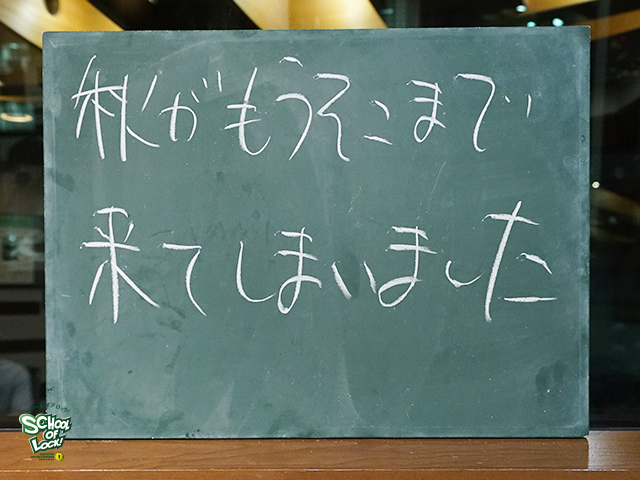 秋がもうそこまで
来てしまいました
SCHOOL
OF
LOCK!